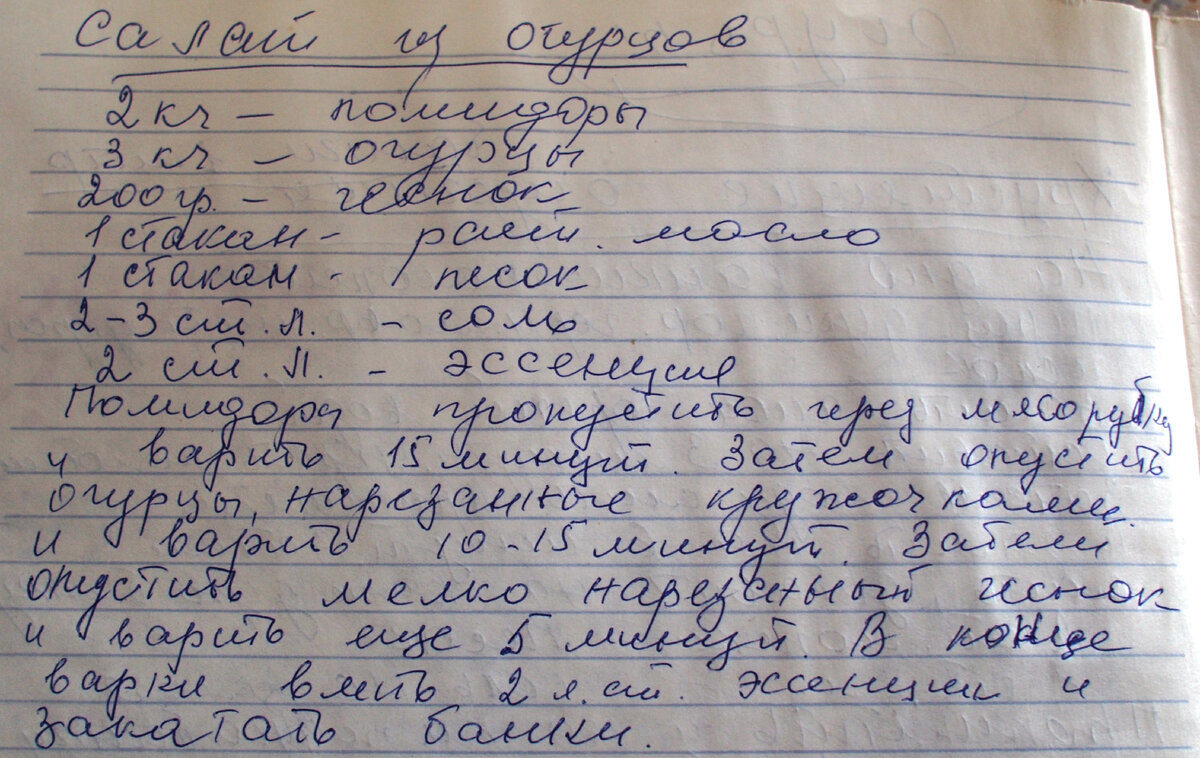 Салат из огурцов
2 кг – помидоры
3 кг – огурцы
200 гр. – чеснок
1 стакан – раст. масло
1 стакан – песок
2-3 ст. л. – соль
2 ст. л. – эссенция
Помидоры пропустить через мясорубку
и варить 15 минут. Затем опустить
огурцы, нарезанные кружочками
и варить 10-15 минут. Затем
опустить мелко нарезаный чеснок
и варить еще 5 минут. В конце
варки влить 2 л. ст. эссенции и
закатать банки.